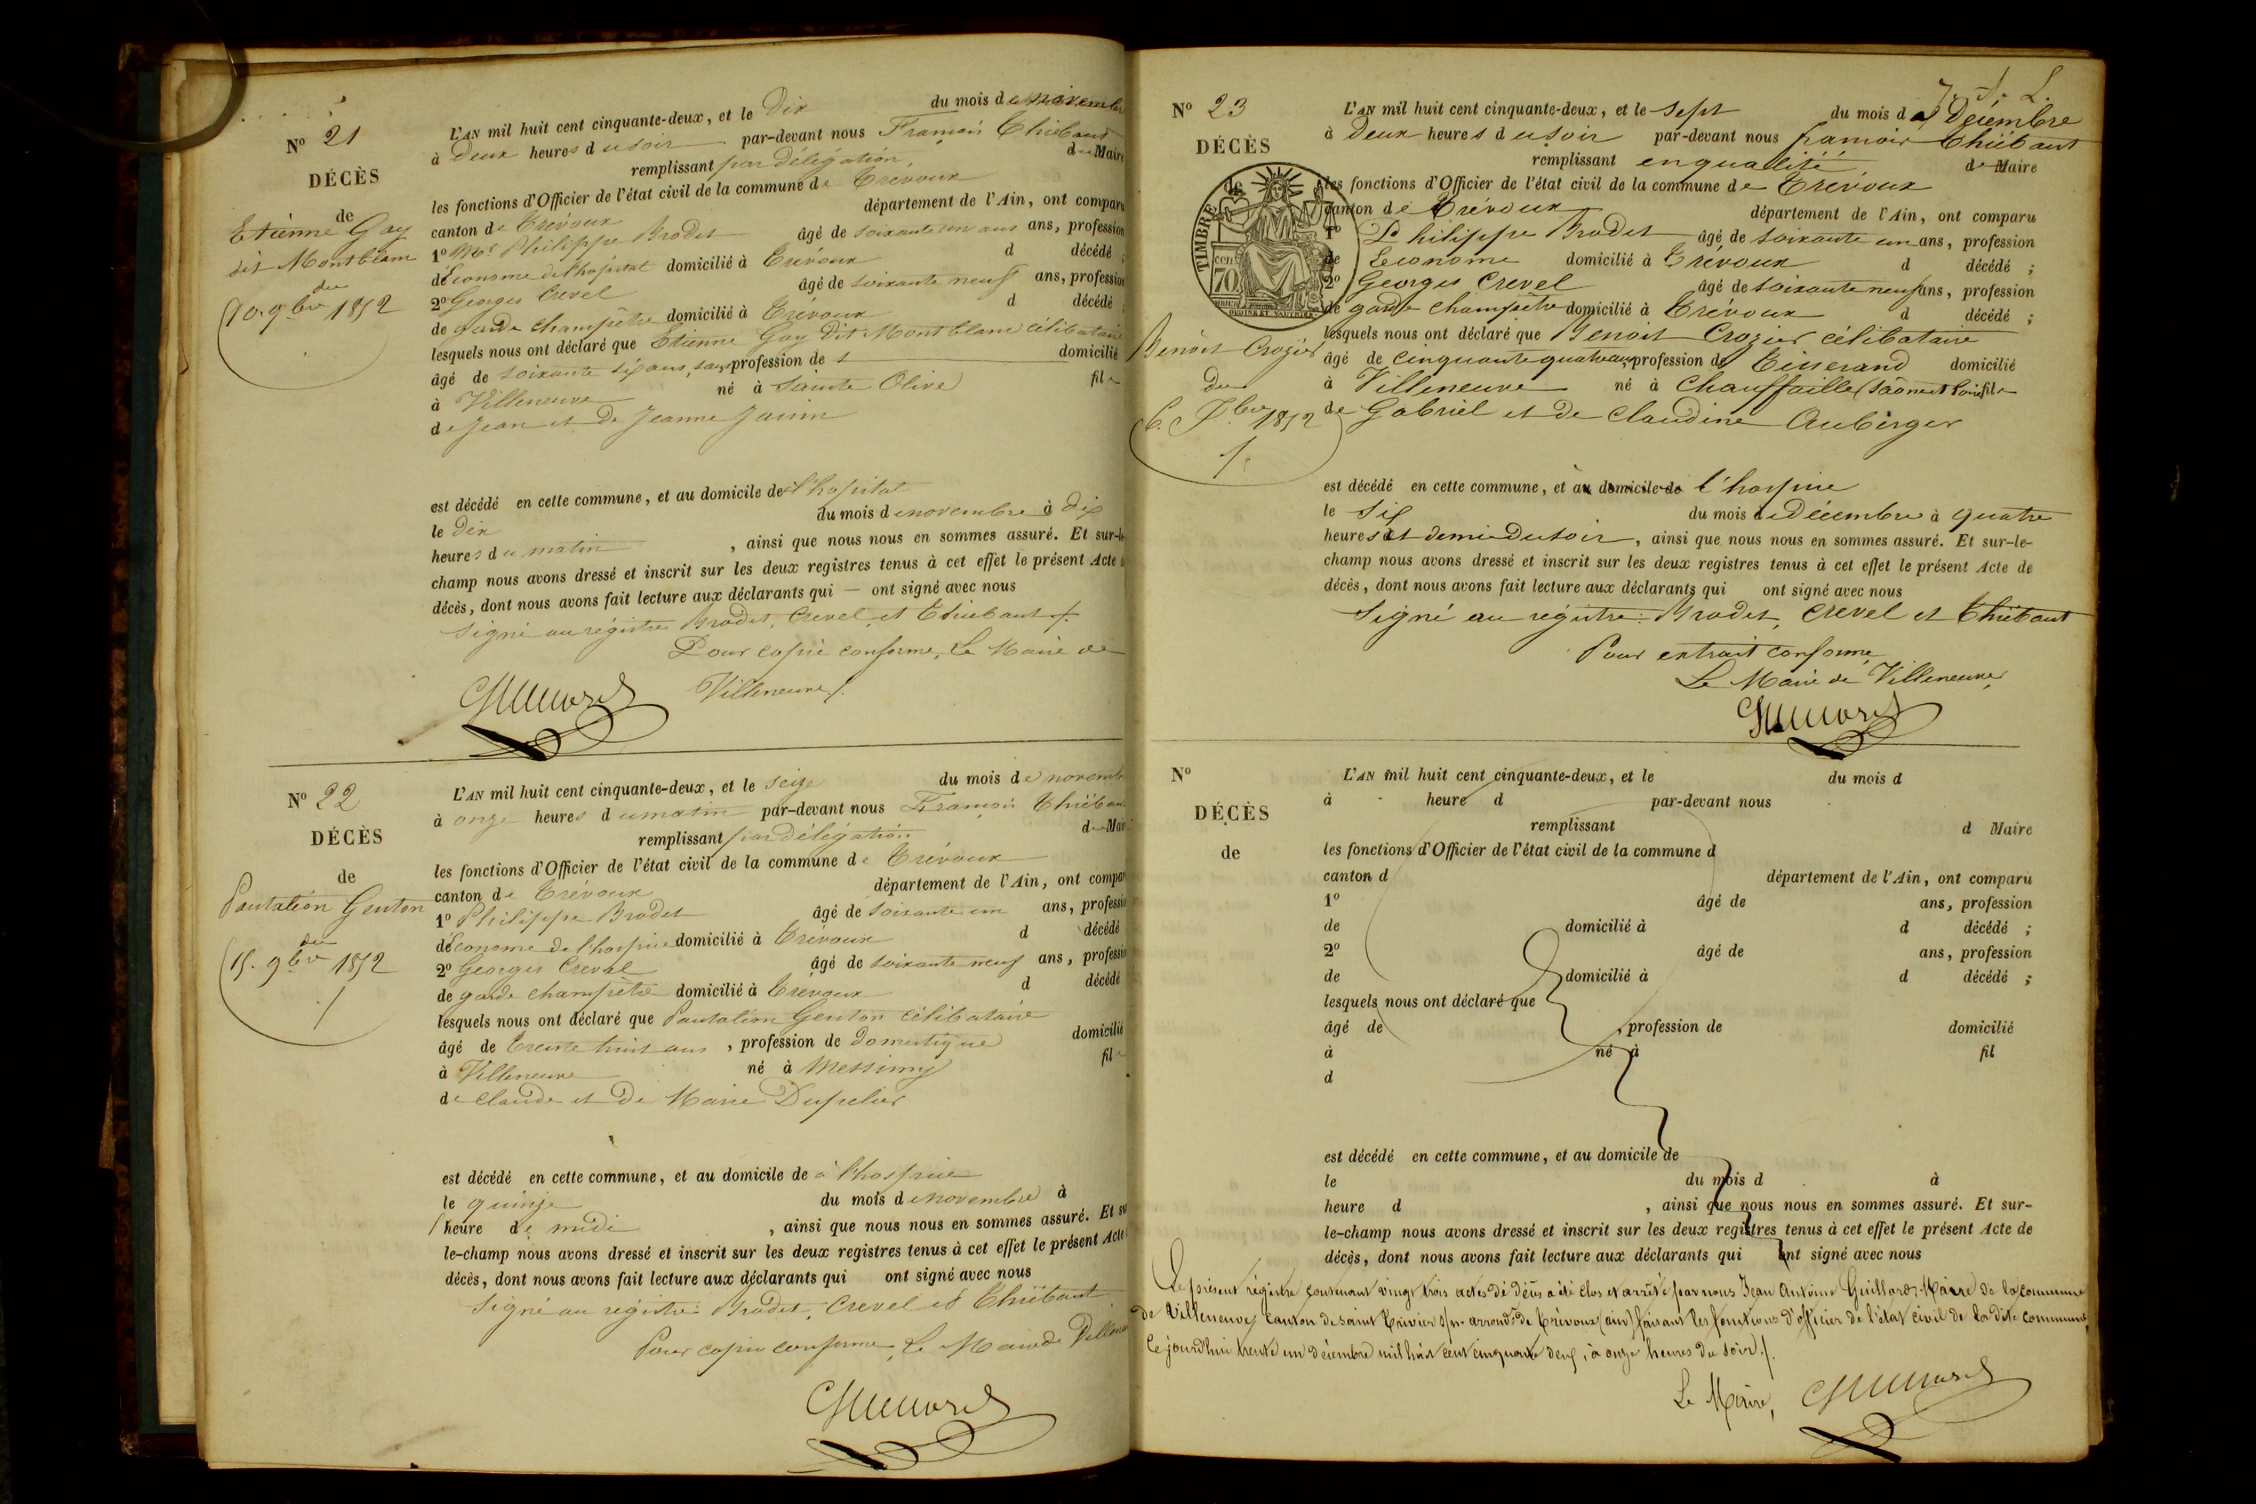 N° 21
DÉCÈS
de
Etienne Gay
dit Montblanc
du
10. 9bre 1852
L'AN mil huit cent cinquante-deux, et le Dix du mois de novembre
à Deux heures du soir par-devant nous François Thiébaut
remplissant par délégation, de Maire
les fonctions d'Officier de l'état civil de la commune de Trévoux
canton de Trévoux département de l'Ain, ont comparu
1° Mr Philippe Brodet âgé de soixante un ans ans, profession
d'Econome de l'hopital domicilié à Trévoux d décédé ;
2° Georges Crevel âgé de soixante neuf ans, profession
de garde champêtre domicilié à Trévoux d décédé ;
lesquels nous ont déclaré que Etienne Gay dit Montblanc célibataire
âgé de soixante six ans, sans profession de domicilié
à Villeneuve né à Sainte Olive fils
de Jean et de Jeanne
est décédé en cette commune, et au domicile de l'hopital
le Dix du mois de novembre à dix
heures du matin, ainsi que nous nous en sommes assuré. Et sur-le-
champ nous avons dressé et inscrit sur les deux registres tenus à cet effet le présent Acte de
décès, dont nous avons fait lecture aux déclarants qui — ont signé avec nous
Signé au régistre Brodet, Crevel et Thiébaut /.
Pour copie conforme, Le Maire de
Villeneuve /.
N° 22
DÉCÈS
de
Pantaléon Genton
du
15. 9bre 1852
L'AN mil huit cent cinquante-deux, et le seize du mois de novembre
à onze heures du matin par-devant nous François Thiébaut
remplissant par délégation de Maire
les fonctions d'Officier de l'état civil de la commune de Trévoux
canton de Trévoux département de l'Ain, ont comparu
1° Philippe Brodet âgé de soixante un ans, profession
d'économe de l'hospice domicilié à Trévoux d décédé
2° Georges Crevel âgé de soixante neuf ans, profession
de garde champêtre domicilié à Trévoux d décédé
lesquels nous ont déclaré que Pantaléon Genton célibataire
âgé de trente huit ans, profession de domestique domicilié
à Villeneuve né à Messimy fils
de Claude et de Marie Dupelier
est décédé en cette commune, et au domicile de à l'hospice
le quinze du mois de novembre à
heure de midi, ainsi que nous nous en sommes assuré. Et sur-
le-champ nous avons dressé et inscrit sur les deux registres tenus à cet effet le présent Acte
décès, dont nous avons fait lecture aux déclarants qui ont signé avec nous
Signé au régistre: Brodet, Crevel et Thiébaut
Pour copie conforme, Le Maire de Villeneuve
N° 23
DÉCÈS
de
TIMBRE
cent
70
Benoit Crozier
du
6. Xbre 1852
L'AN mil huit cent cinquante-deux, et le sept du mois de Décembre
à Deux heures du soir par-devant nous françois Thiébaut
remplissant en qualité de Maire
les fonctions d'Officier de l'état civil de la commune de Trévoux
canton de Trévoux département de l'Ain, ont comparu
1° Philippe Brodet âgé de soixante un ans, profession
de Econome domicilié à Trévoux d décédé ;
2° Georges Crevel âgé de soixante neuf ans, profession
de garde champêtre domicilié à Trévoux d décédé ;
lesquels nous ont déclaré que Benoit Crozier célibataire
âgé de cinquante quatre ans, profession de Tisserand domicilié
à Villeneuve né à Chauffaille (Saône et Loire) fils
de Gabriel et de Claudine Auberger
est décédé en cette commune, et au domicile de l'hospice
le six du mois de décembre à quatre
heures et demie du soir, ainsi que nous nous en sommes assuré. Et sur-le-
champ nous avons dressé et inscrit sur les deux registres tenus à cet effet le présent Acte de
décès, dont nous avons fait lecture aux déclarants qui ont signé avec nous
Signé au régistre: Brodet, Crevel et Thiébaut
Pour extrait conforme
Le Maire de Villeneuve,
N°
DÉCÈS
de
L'AN mil huit cent cinquante-deux, et le du mois d
à heure d par-devant nous
remplissant d Maire
les fonctions d'Officier de l'état civil de la commune d
canton d département de l'Ain, ont comparu
1° âgé de ans, profession
de domicilié à d décédé ;
2° âgé de ans, profession
de domicilié à d décédé ;
lesquels nous ont déclaré que
âgé de , profession de domicilié
à né à fil
d
est décédé en cette commune, et au domicile de
le du mois d à
heure d , ainsi que nous nous en sommes assuré. Et sur-
le-champ nous avons dressé et inscrit sur les deux registres tenus à cet effet le présent Acte de
décès, dont nous avons fait lecture aux déclarants qui ont signé avec nous
Le présent régistre contenant vingt trois actes de décès a été clos et arrêté par nous Jean Antoine Guillard, Maire de la commune
de Villeneuve, Canton de Saint Trivier s/m. arrondt de Trévoux (ain) faisant les fonctions d'officier de l'état civil de la dite commune,
Ce jourdhui trente un décembre mil huit cent cinquante deux, à onze heures du soir /.
Le Maire,